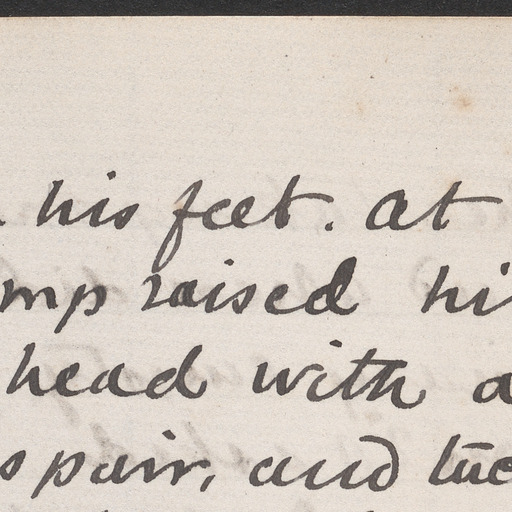 his feet. At
mp raised hi
head with a
spair, and tuc